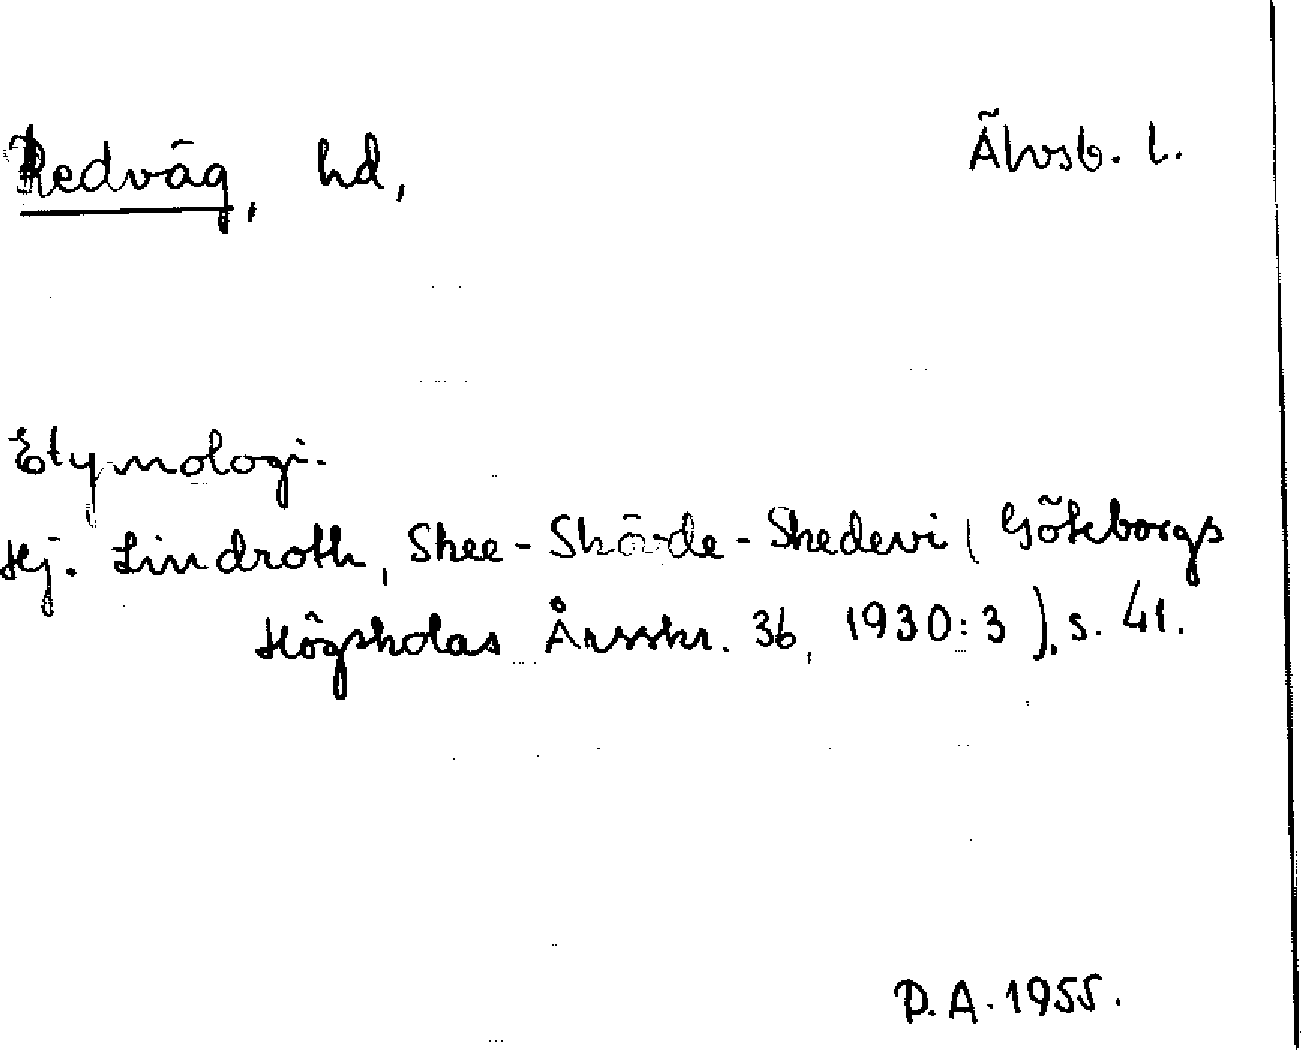 Redväg, hd,
Älvsb. l.
Etymologi.
Hj. Lindroth, Skee-Skövde-Skedevi (Göteborgs
Högskolas Årsskr. 36, 1930:3), s. 41.
P.A. 1955.